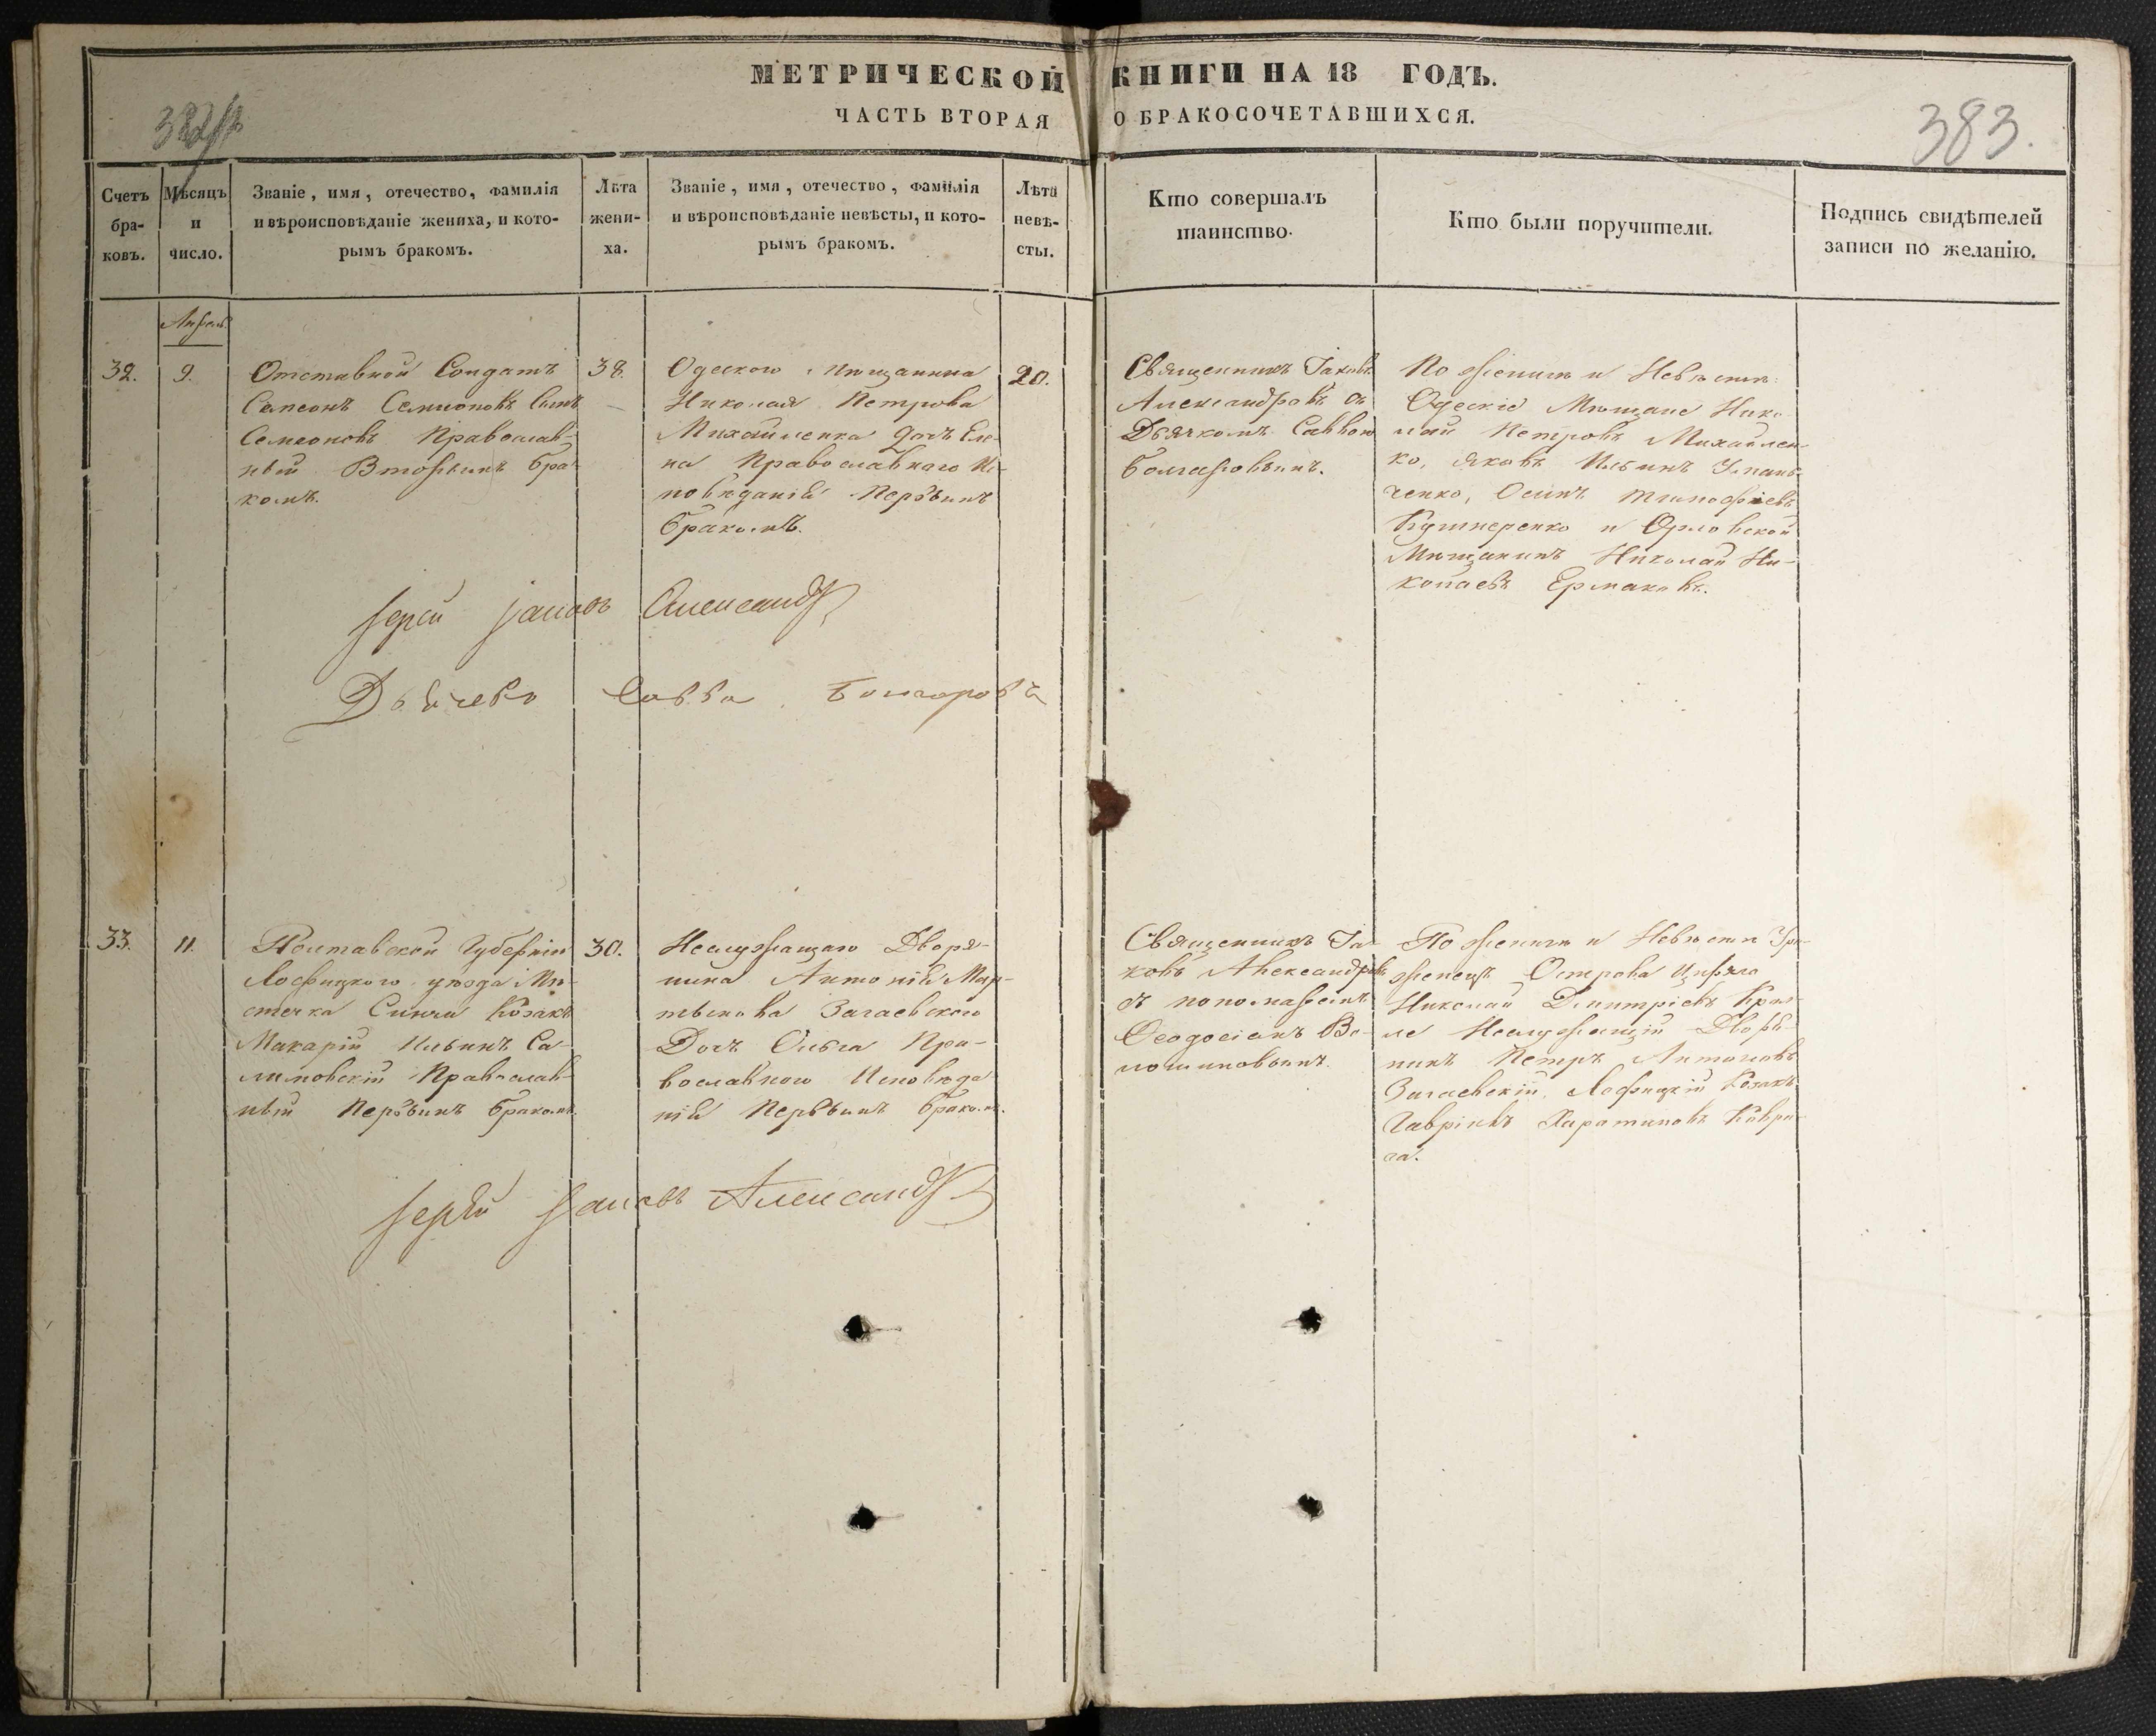 МЕТРИЧЕСКОЙ КНИГИ НА 18 ГОДЪ.
ЧАСТЬ ВТОРАЯ О БРАКОСОЧЕТАВШИХСЯ.
383.
Счетъ
бра-
ковъ.
Мѣсяцъ
и
число.
Званіе, имя, отечество, фамилія
и вѣроисповѣданіе жениха, и кото-
рымъ бракомъ.
Лѣта
жени-
ха.
Званіе, имя, отечество, фамилія
и вѣроисповѣданіе невѣсты, и кото-
рымъ бракомъ.
Лѣта
невѣ-
сты.
Кто совершалъ
таинство.
Кто были поручители.
Подпись свидѣтелей
записи по желанію.
Апрель
32.
9.
Отставной Солдатъ
Семеоновъ Православ-
ный Вторымъ бра-
комъ.
38.
Одеского мѣщанина
Николая Петрова
Михайленка дочь Еле-
на Православнаго Ис-
повѣданія Первымъ
бракомъ.
20.
Священникъ Іаковъ
Александровъ съ
Дьячкомъ Саввою
Болгаровымъ.
По женихѣ и Невѣстѣ:
Одескіе Мѣщане Нико-
лай Петровъ Михайлен-
ко, Яковъ Ильинъ
Осипъ Тимофѣевъ
Кушнеренко и Орловской
Мѣщанинъ Николай Ни-
колаевъ Ермаковъ.
Іерей Іаковъ Александровъ
Дьячекъ Савва Болгаровъ
33.
11.
Полтавской Губерніи
Лофицкого уѣзда Мѣ-
стечка Сѣнчи Козакъ
Макарій Ильинъ Са-
лимовскій Православ-
ный Первымъ бракомъ.
30.
Неслужащаго Дворя-
нина Антонія Мар-
тынова Загаевского
Дочь Ольга Пра-
вославного Исповѣда-
нія Первымъ бракомъ.
Священникъ Іа-
ковъ Александровъ
съ пономаремъ
Ѳеодосіемъ Во-
лошиновымъ.
По женихѣ и Невѣстѣ
Острова
Николай Дмитріевъ
Неслужащій Дворя-
нинъ Петръ Антоновъ
Загаевскій, Лофицкій Козакъ
Гавріилъ
Іерей Іаковъ Александровъ